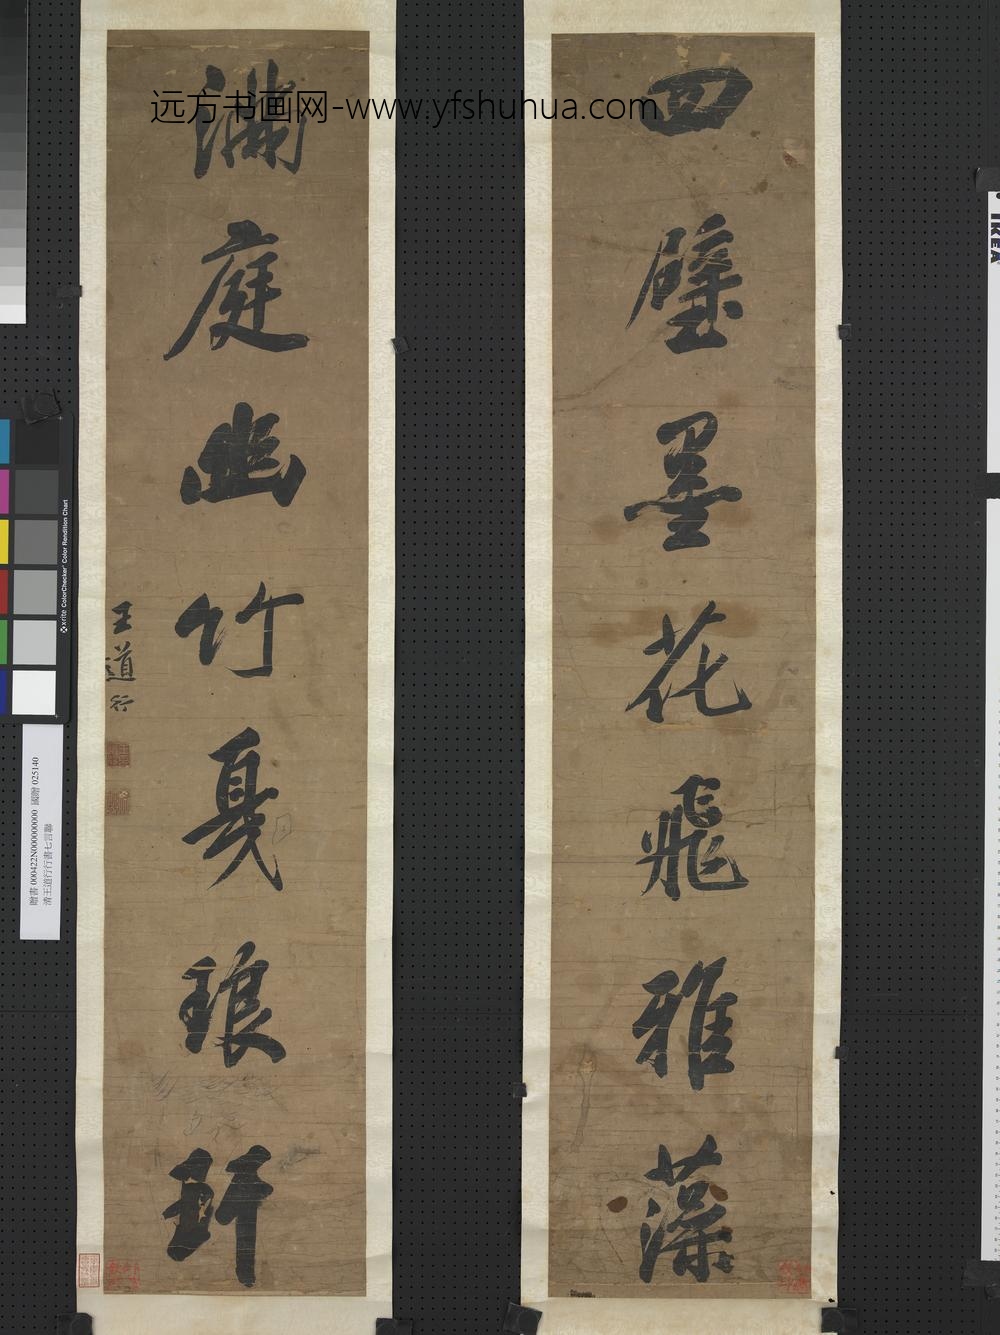 远方书画网-www.yfshuhua.com
四壁墨花飛雅藻
滿庭幽竹戛琅玕
王道行
贈書 000422N000000000 國贈 025140
清王道行行書七言聯
x-rite ColorChecker Color Rendition Chart
IKEA